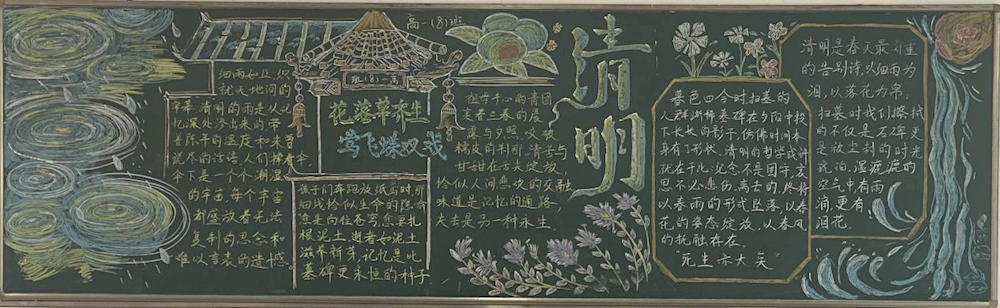 细雨如丝织
就天地间的
清明的雨是从记
忆深处渗出来的带
着陈年的温度和未
说尽的话语,人们撑着伞
伞下是一个个潮湿
的宇宙,每个宇宙
都盛放着无法
复制的思念和
难以言表的遗憾。
高一(8)班
班(8)一高
花落草齐生
莺飞蝶双戏
孩子们奔跑放纸鸢时,那
细线恰似生命的隐喻
愈是向往苍穹愈要扎
根泥土,逝者如泥土
滋养新芽,记忆是比
墓碑更永恒的种子
祖母手心的青团
裹着三春的晨
露与夕照,咬破
糯皮的刹那,清苦与
甘甜在舌尖绽放
恰似人间悲欢的交融
味道是记忆的通路
失去是另一种永生
清明
暮色四合时,扫墓的
人群渐稀,墓碑在夕阳中投
下长长的影子,仿佛时间本
身有了形状,清明的哲学或许
就在于此:纪念不是困守,哀
思不必悲伤,离去的,终将
以春雨的形式坠落,以春
花的姿态绽放,以春风
的抚触存在。
"死生亦大矣"
清明是春天最
的告别诗,以细雨为
泪,以落花为帛。
扫墓时我们擦拭
的不仅是石碑,更
是被尘封的时光
流泊,湿漉漉的
空气中有雨
滴,更有
泪花。